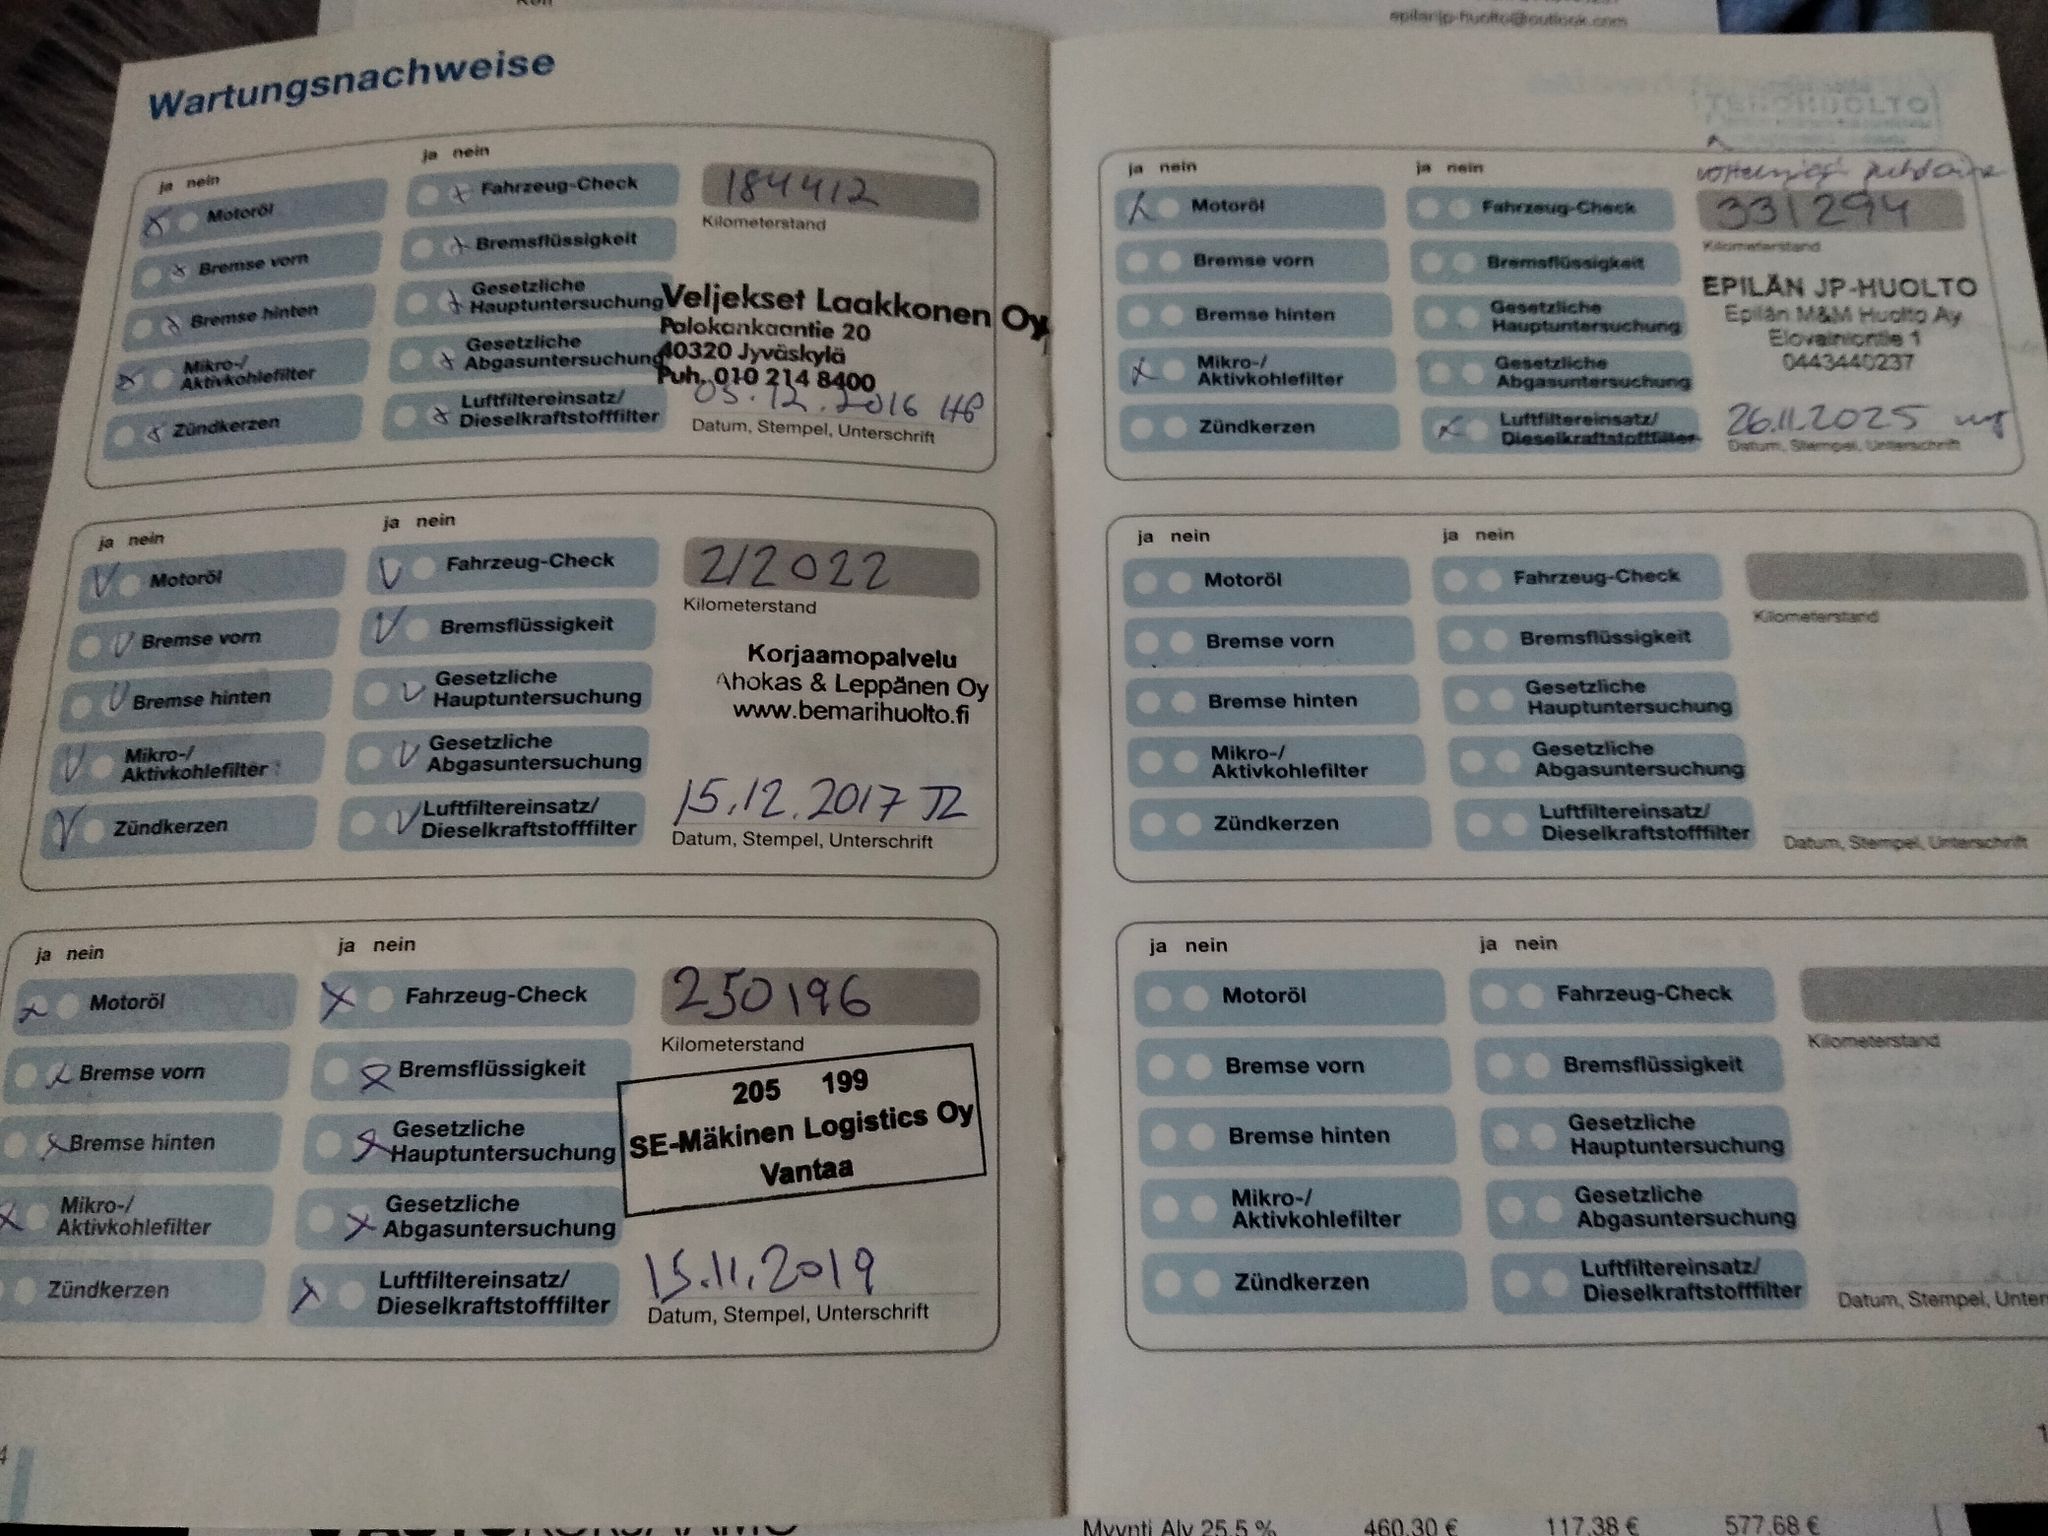 epilar.jp-huolto@outlook.com
Wartungsnachweise
ja nein
ja nein
Motoröl
Bremse vorn
Bremse hinten
Mikro-/
Aktivkohlefilter
Zündkerzen
Fahrzeug-Check
Bremsflüssigkeit
Gesetzliche
Hauptuntersuchung
Gesetzliche
Abgasuntersuchung
Luftfiltereinsatz/
Dieselkraftstofffilter
184412
Kilometerstand
Veljekset Laakkonen Oy
Palokankaantie 20
40320 Jyväskylä
Puh. 010 214 8400
05.12.2016
Datum, Stempel, Unterschrift
ja nein
ja nein
Motoröl
Bremse vorn
Bremse hinten
Mikro-/
Aktivkohlefilter
Zündkerzen
Fahrzeug-Check
Bremsflüssigkeit
Gesetzliche
Hauptuntersuchung
Gesetzliche
Abgasuntersuchung
Luftfiltereinsatz/
Dieselkraftstofffilter
212022
Kilometerstand
Korjaamopalvelu
Ahokas & Leppänen Oy
www.bemarihuolto.fi
15.12.2017
Datum, Stempel, Unterschrift
ja nein
ja nein
Motoröl
Bremse vorn
Bremse hinten
Mikro-/
Aktivkohlefilter
Zündkerzen
Fahrzeug-Check
Bremsflüssigkeit
Gesetzliche
Hauptuntersuchung
Gesetzliche
Abgasuntersuchung
Luftfiltereinsatz/
Dieselkraftstofffilter
250196
Kilometerstand
205 199
SE-Mäkinen Logistics Oy
Vantaa
15.11.2019
Datum, Stempel, Unterschrift
4
TEHOHUOLTO
ja nein
ja nein
Motoröl
Bremse vorn
Bremse hinten
Mikro-/
Aktivkohlefilter
Zündkerzen
Fahrzeug-Check
Bremsflüssigkeit
Gesetzliche
Hauptuntersuchung
Gesetzliche
Abgasuntersuchung
Luftfiltereinsatz/
Dieselkraftstofffilter
331294
Kilometerstand
EPILÄN JP-HUOLTO
Epilän M&M Huolto Ay
Elovainiontie 1
0443440237
26.11.2025
Datum, Stempel, Unterschrift
ja nein
ja nein
Motoröl
Bremse vorn
Bremse hinten
Mikro-/
Aktivkohlefilter
Zündkerzen
Fahrzeug-Check
Bremsflüssigkeit
Gesetzliche
Hauptuntersuchung
Gesetzliche
Abgasuntersuchung
Luftfiltereinsatz/
Dieselkraftstofffilter
Kilometerstand
Datum, Stempel, Unterschrift
ja nein
ja nein
Motoröl
Bremse vorn
Bremse hinten
Mikro-/
Aktivkohlefilter
Zündkerzen
Fahrzeug-Check
Bremsflüssigkeit
Gesetzliche
Hauptuntersuchung
Gesetzliche
Abgasuntersuchung
Luftfiltereinsatz/
Dieselkraftstofffilter
Kilometerstand
Datum, Stempel, Unter
Myynti Alv 25,5 % 460,30 € 117,38 € 577,68 €